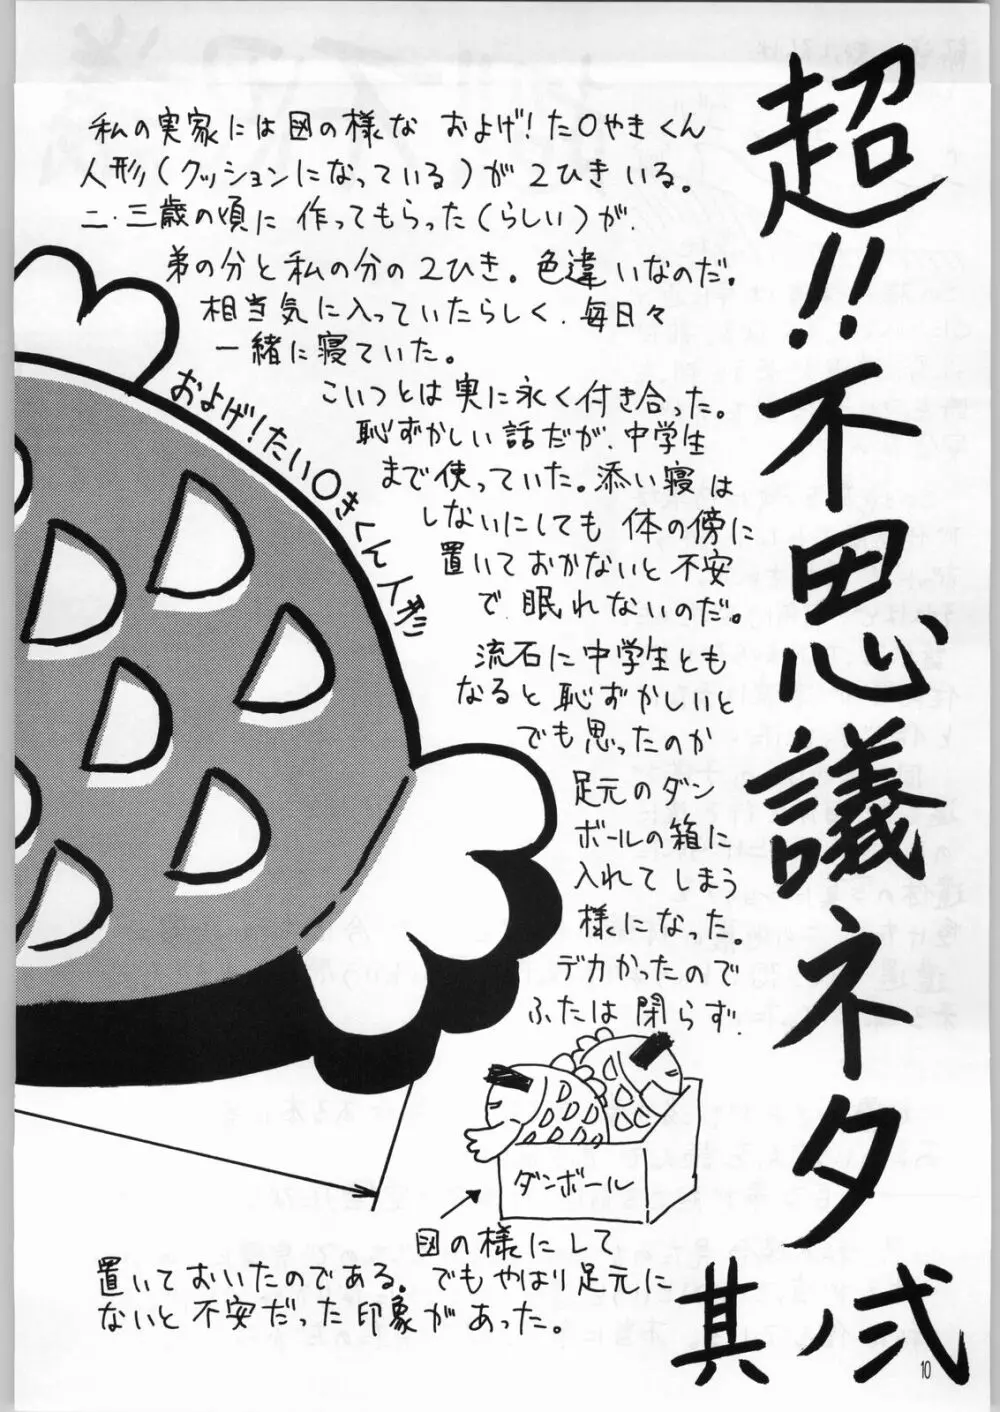 超!!不思議ネタ
其ノ弐
私の実家には図の様な およげ!た〇やきくん
人形(クッションになっている)が2ひきいる。
二.三歳の頃に 作ってもらった(らしい)が.
弟の分と私の分の2ひき。色違いなのだ。
相当気に入っていたらしく.毎日々
一緒に寝ていた。
こいつとは実に永く付き合った。
恥ずかしい話だが.中学生
まで使っていた。添い寝は
しないにしても 体の傍に
置いておかないと 不安
で 眠れないのだ。
流石に中学生とも
なると恥ずかしいと
でも思ったのか
足元のダン
ボールの箱に
入れてしまう
様になった。
デカかったので
ふたは閉らず.
図の様にして
置いておいたのである。でもやはり足元に
ないと不安だった印象があった。
およげ!たい〇きくん人形
ダンボール
10